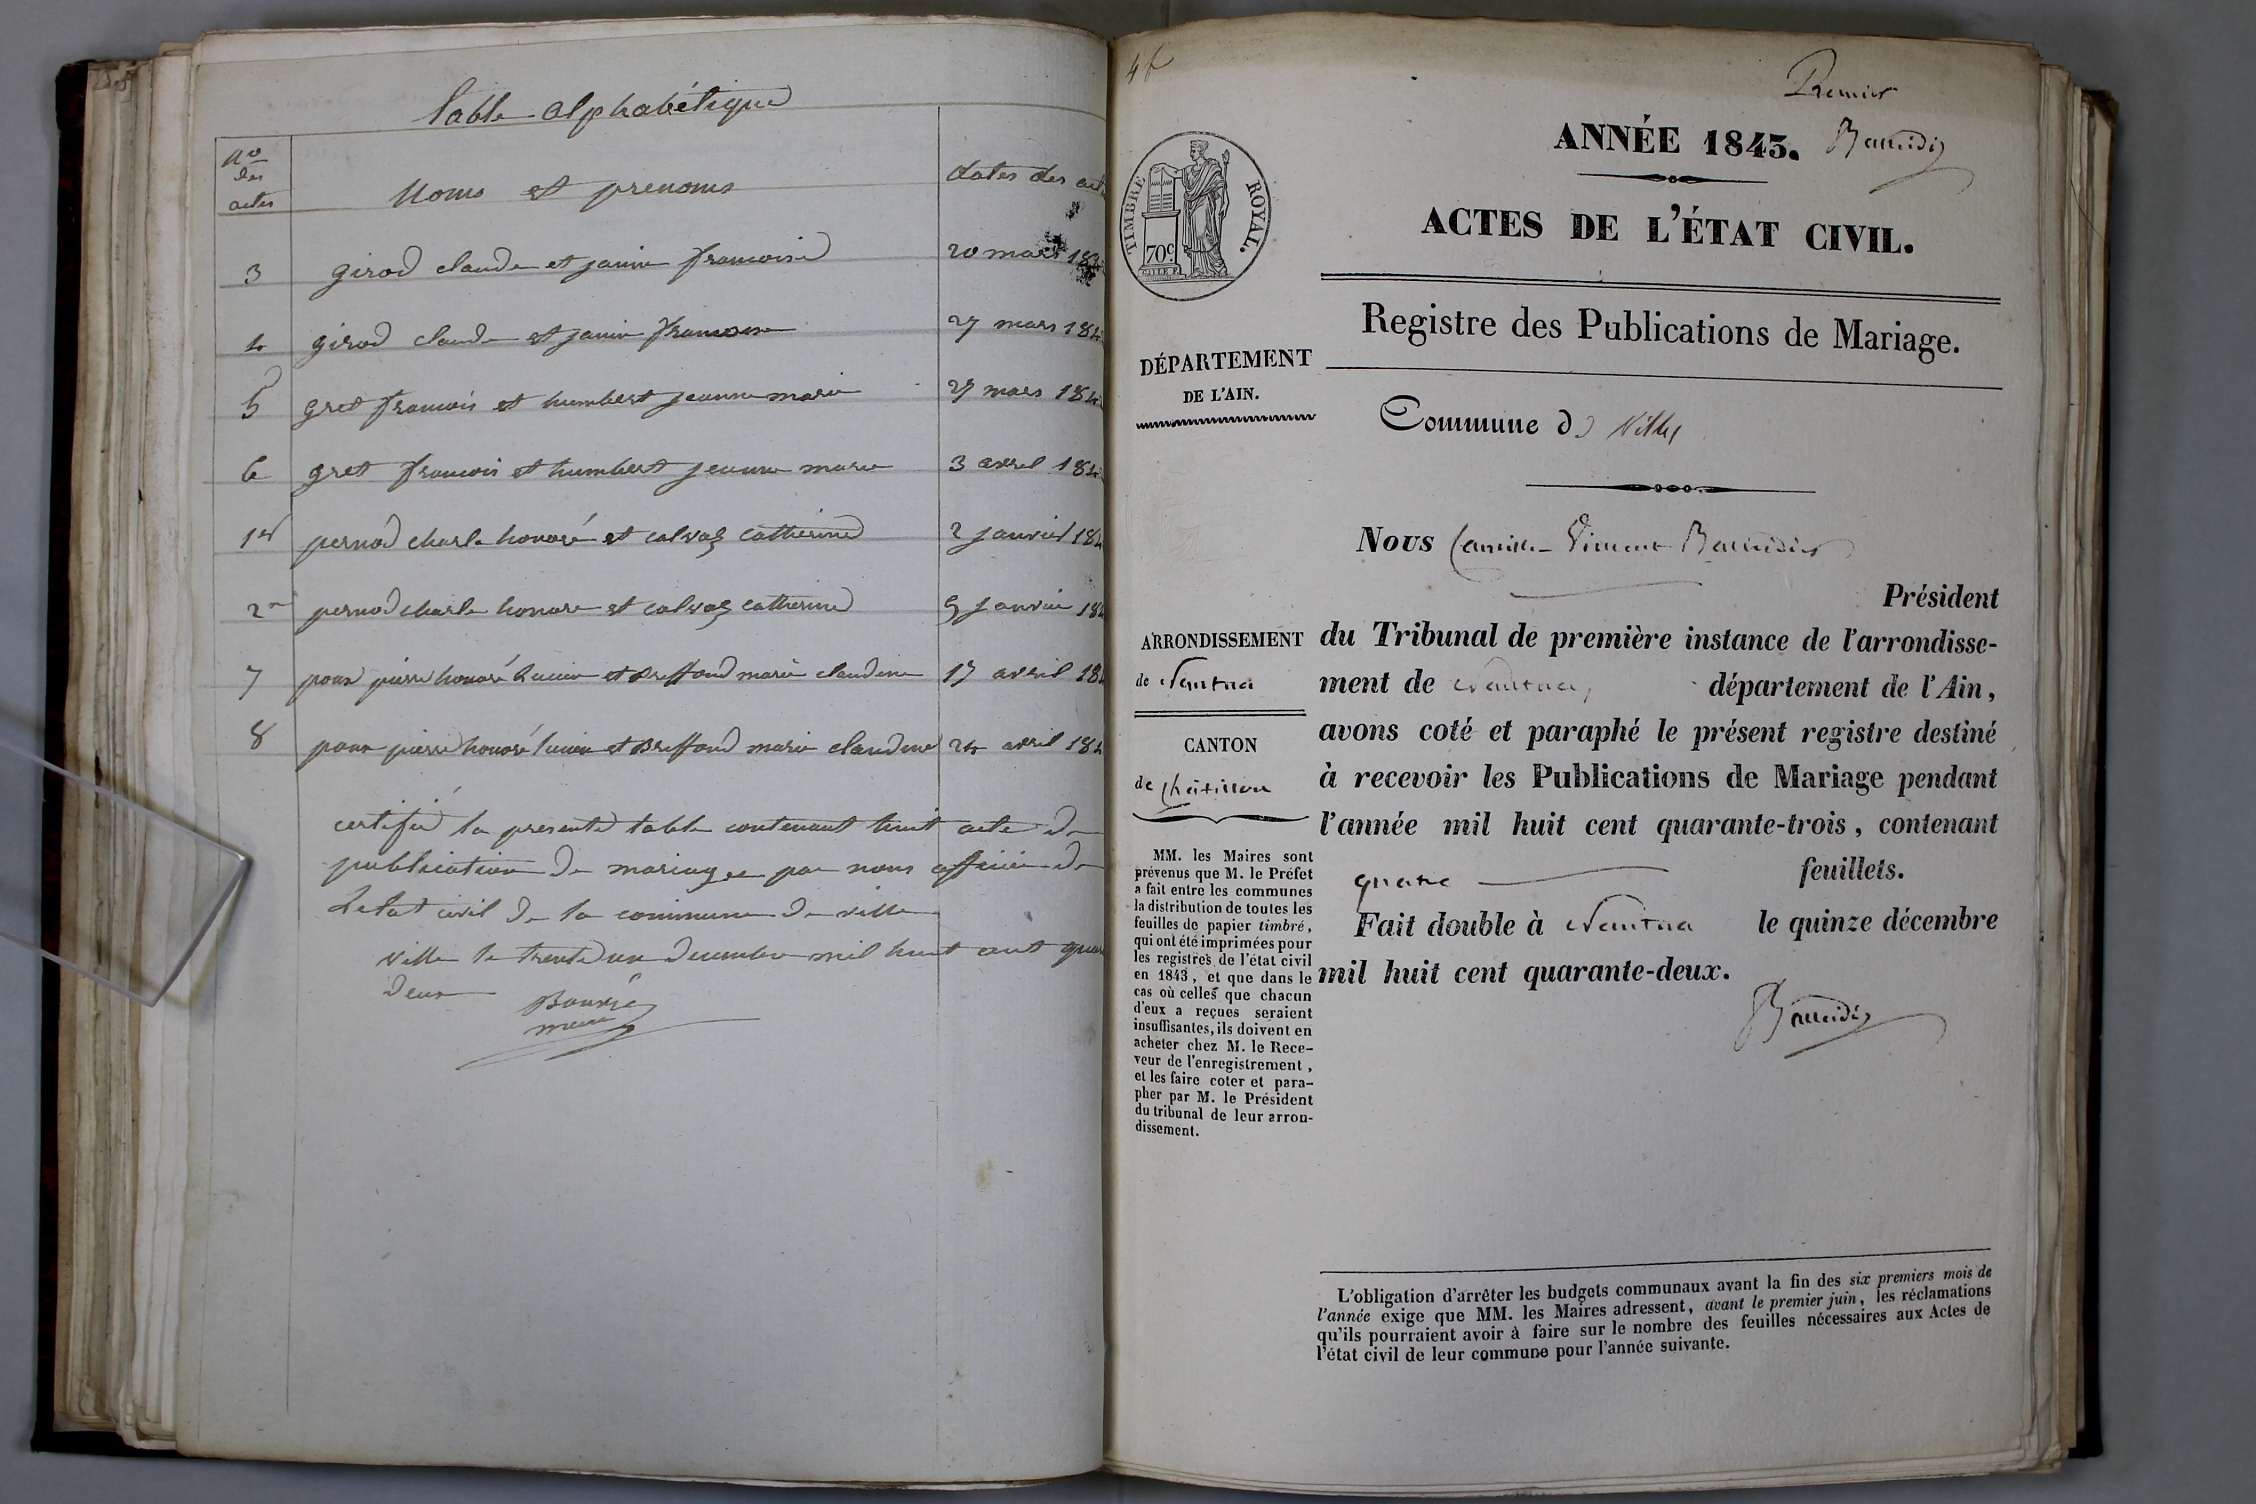 Table alphabétique
Nos des actes
Noms et prenoms
dates des act
3 girod claude et janin francoise 20 mars 184
4 girod claude et janin francoise 27 mars 184
5 gret francois et humbert jeanne marie 27 mars 184
6 gret francois et humbert jeanne marie 3 avril 184
1er pernod charle honoré et calvaz catherine 2 janvier 184
2e pernod charle honore et calvaz catherine 9 janvier 184
7 pierre honoré lucien et Briffond marie claudine 17 avril 184
8 pierre honoré lucien et Briffond marie claudine 24 avril 184
certifié la presente table contenant huit acte de
publication de mariage par nous officier de
Letat civil de la commune de ville
ville le trente un decembre mil huit cent quar
deux
maire
Premier
ANNÉE 1843.
ACTES DE L'ÉTAT CIVIL.
TIMBRE ROYAL.
70c
Registre des Publications de Mariage.
DÉPARTEMENT
DE L'AIN.
Commune de Villes
Nous Camille Vincent
Président
ARRONDISSEMENT
de Nantua
CANTON
de Châtillon
du Tribunal de première instance de l'arrondisse-
ment de Nantua, département de l'Ain,
avons coté et paraphé le présent registre destiné
à recevoir les Publications de Mariage pendant
l'année mil huit cent quarante-trois, contenant
quatre feuillets.
Fait double à Nantua le quinze décembre
mil huit cent quarante-deux.
MM. les Maires sont
prévenus que M. le Préfet
a fait entre les communes
la distribution de toutes les
feuilles de papier timbré,
qui ont été imprimées pour
les registres de l'état civil
en 1843, et que dans le
cas où celles que chacun
d'eux a reçues seraient
insuffisantes, ils doivent en
acheter chez M. le Rece-
veur de l'enregistrement,
et les faire coter et para-
pher par M. le Président
du tribunal de leur arron-
dissement.
L'obligation d'arrêter les budgets communaux avant la fin des six premiers mois de
l'année exige que MM. les Maires adressent, avant le premier juin, les réclamations
qu'ils pourraient avoir à faire sur le nombre des feuilles nécessaires aux Actes de
l'état civil de leur commune pour l'année suivante.